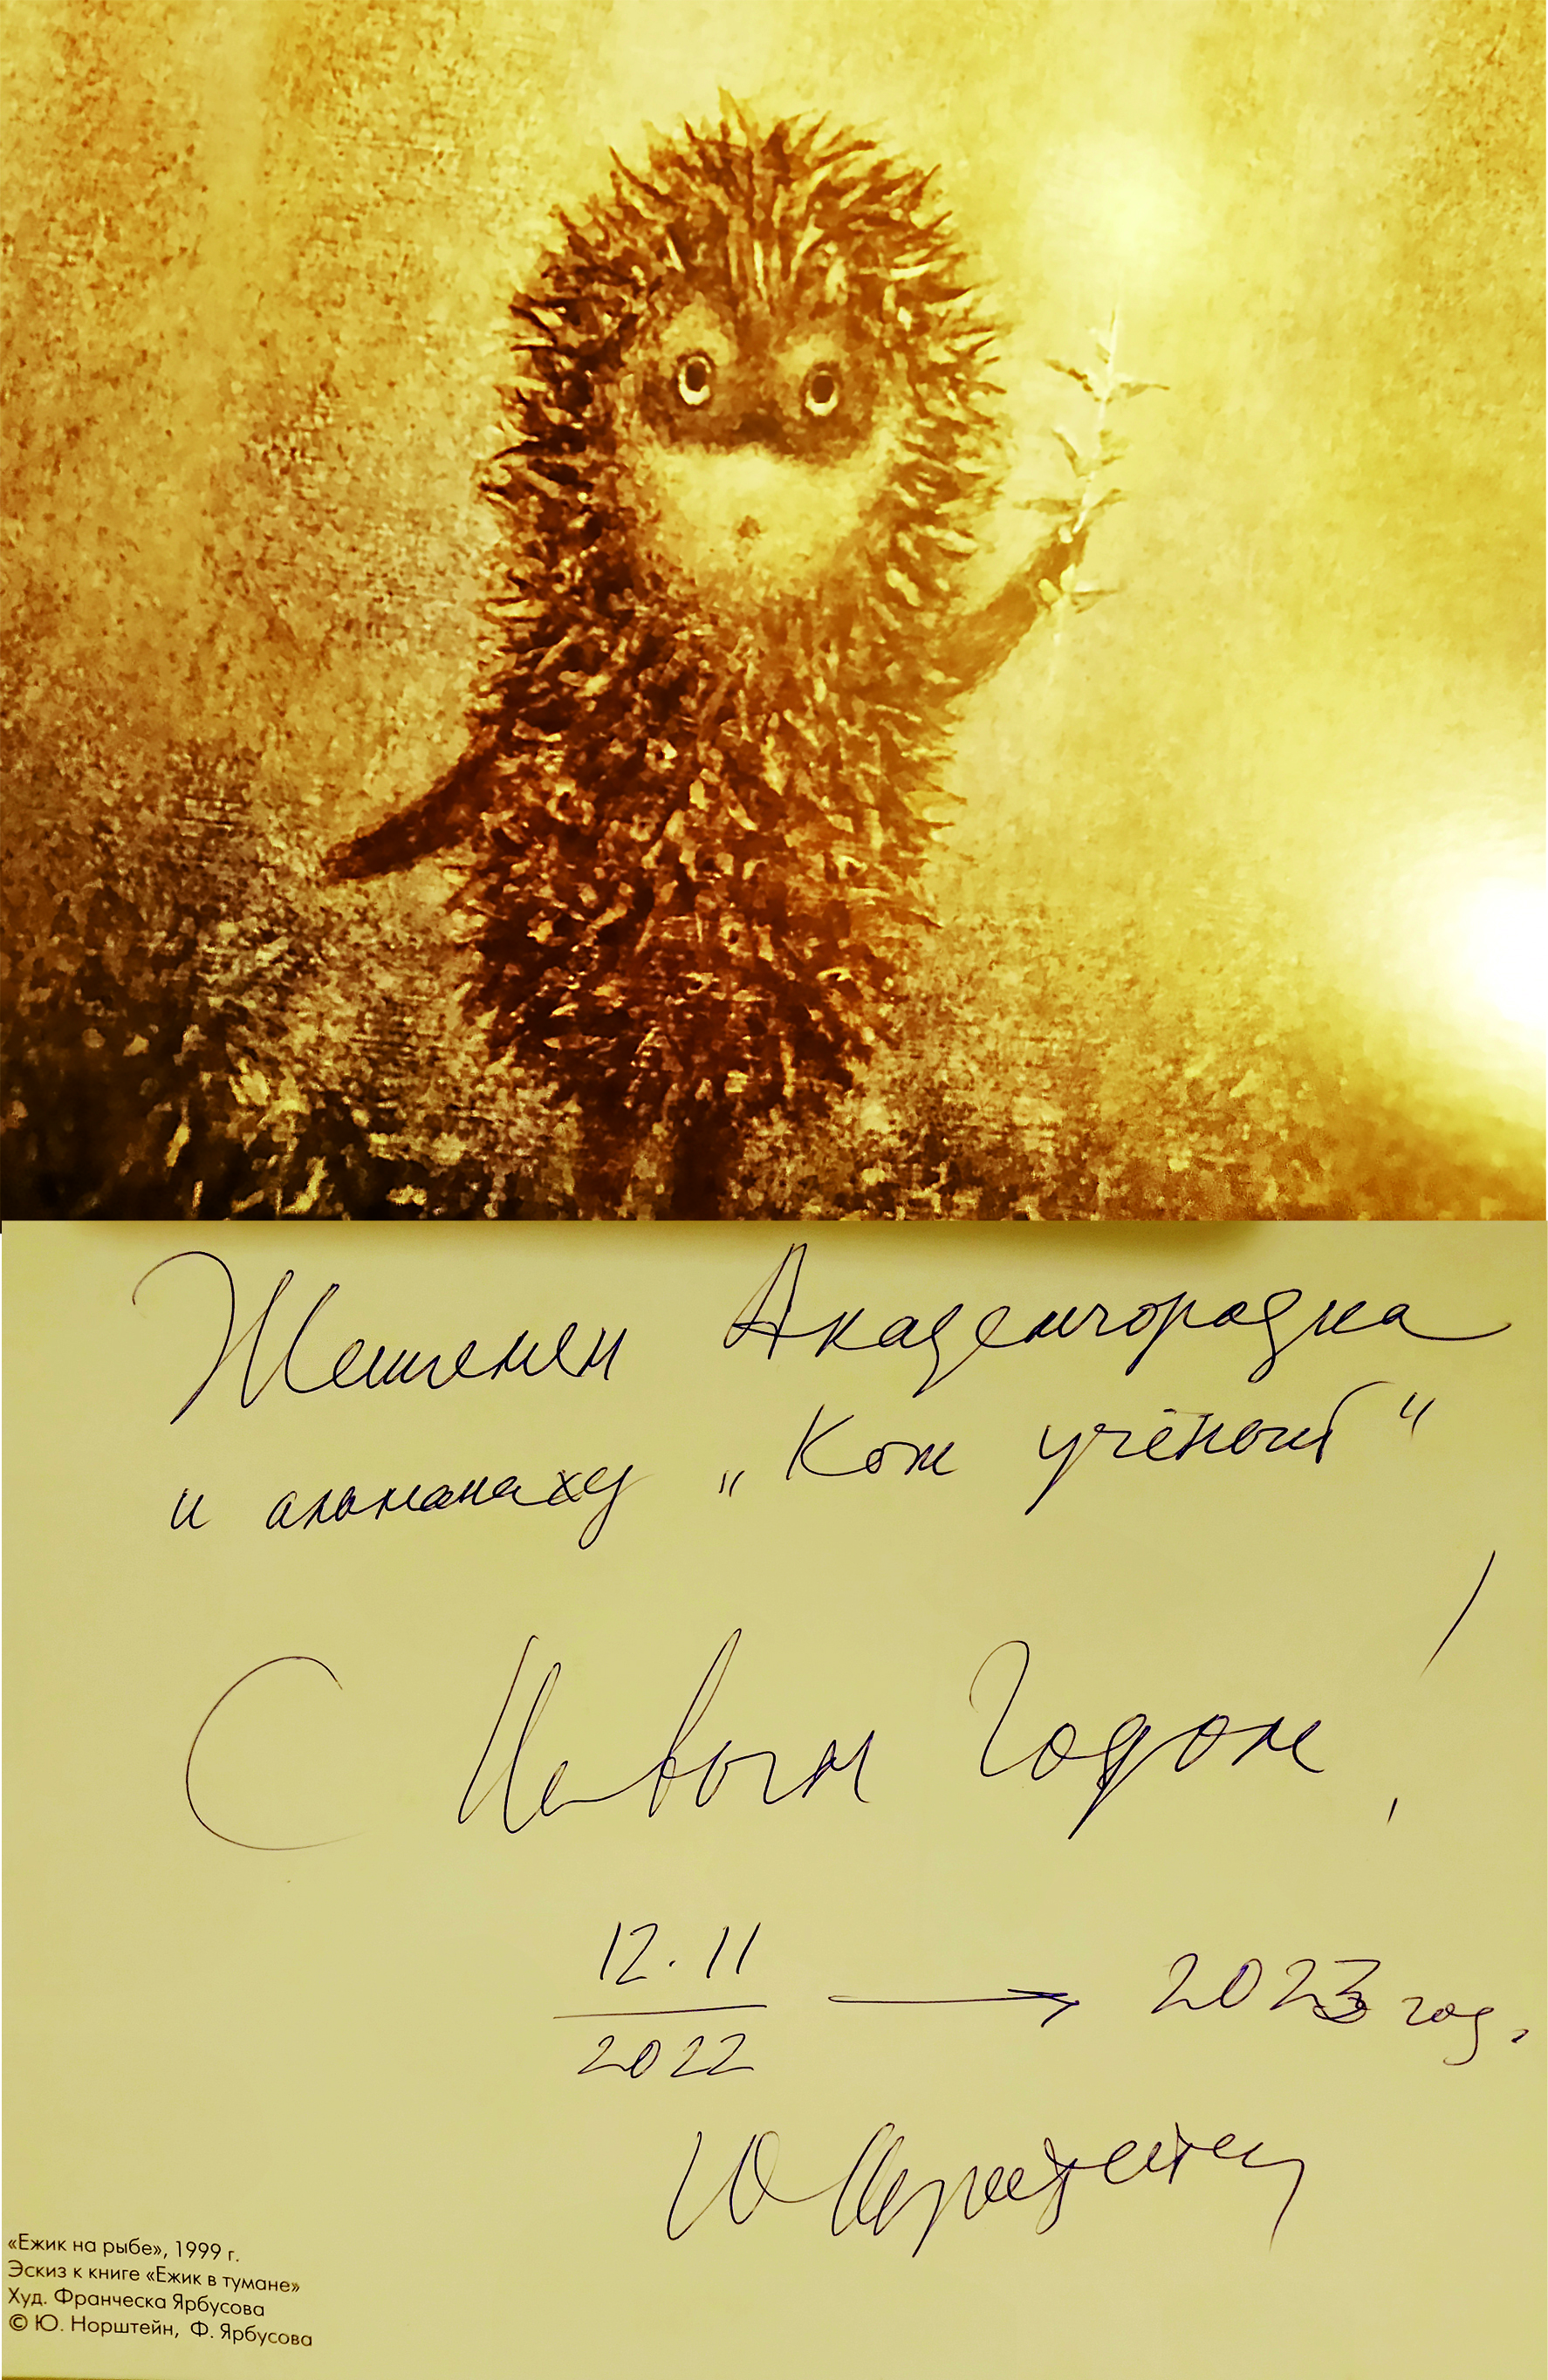 Жителям Академгородка
и альманаху „Кот учёный“
С Новым Годом!
12.11
2022 → 2023 год.
Ю Норштейн
«Ежик на рыбе», 1999 г.
Эскиз к книге «Ежик в тумане»
Худ. Франческа Ярбусова
© Ю. Норштейн, Ф. Ярбусова